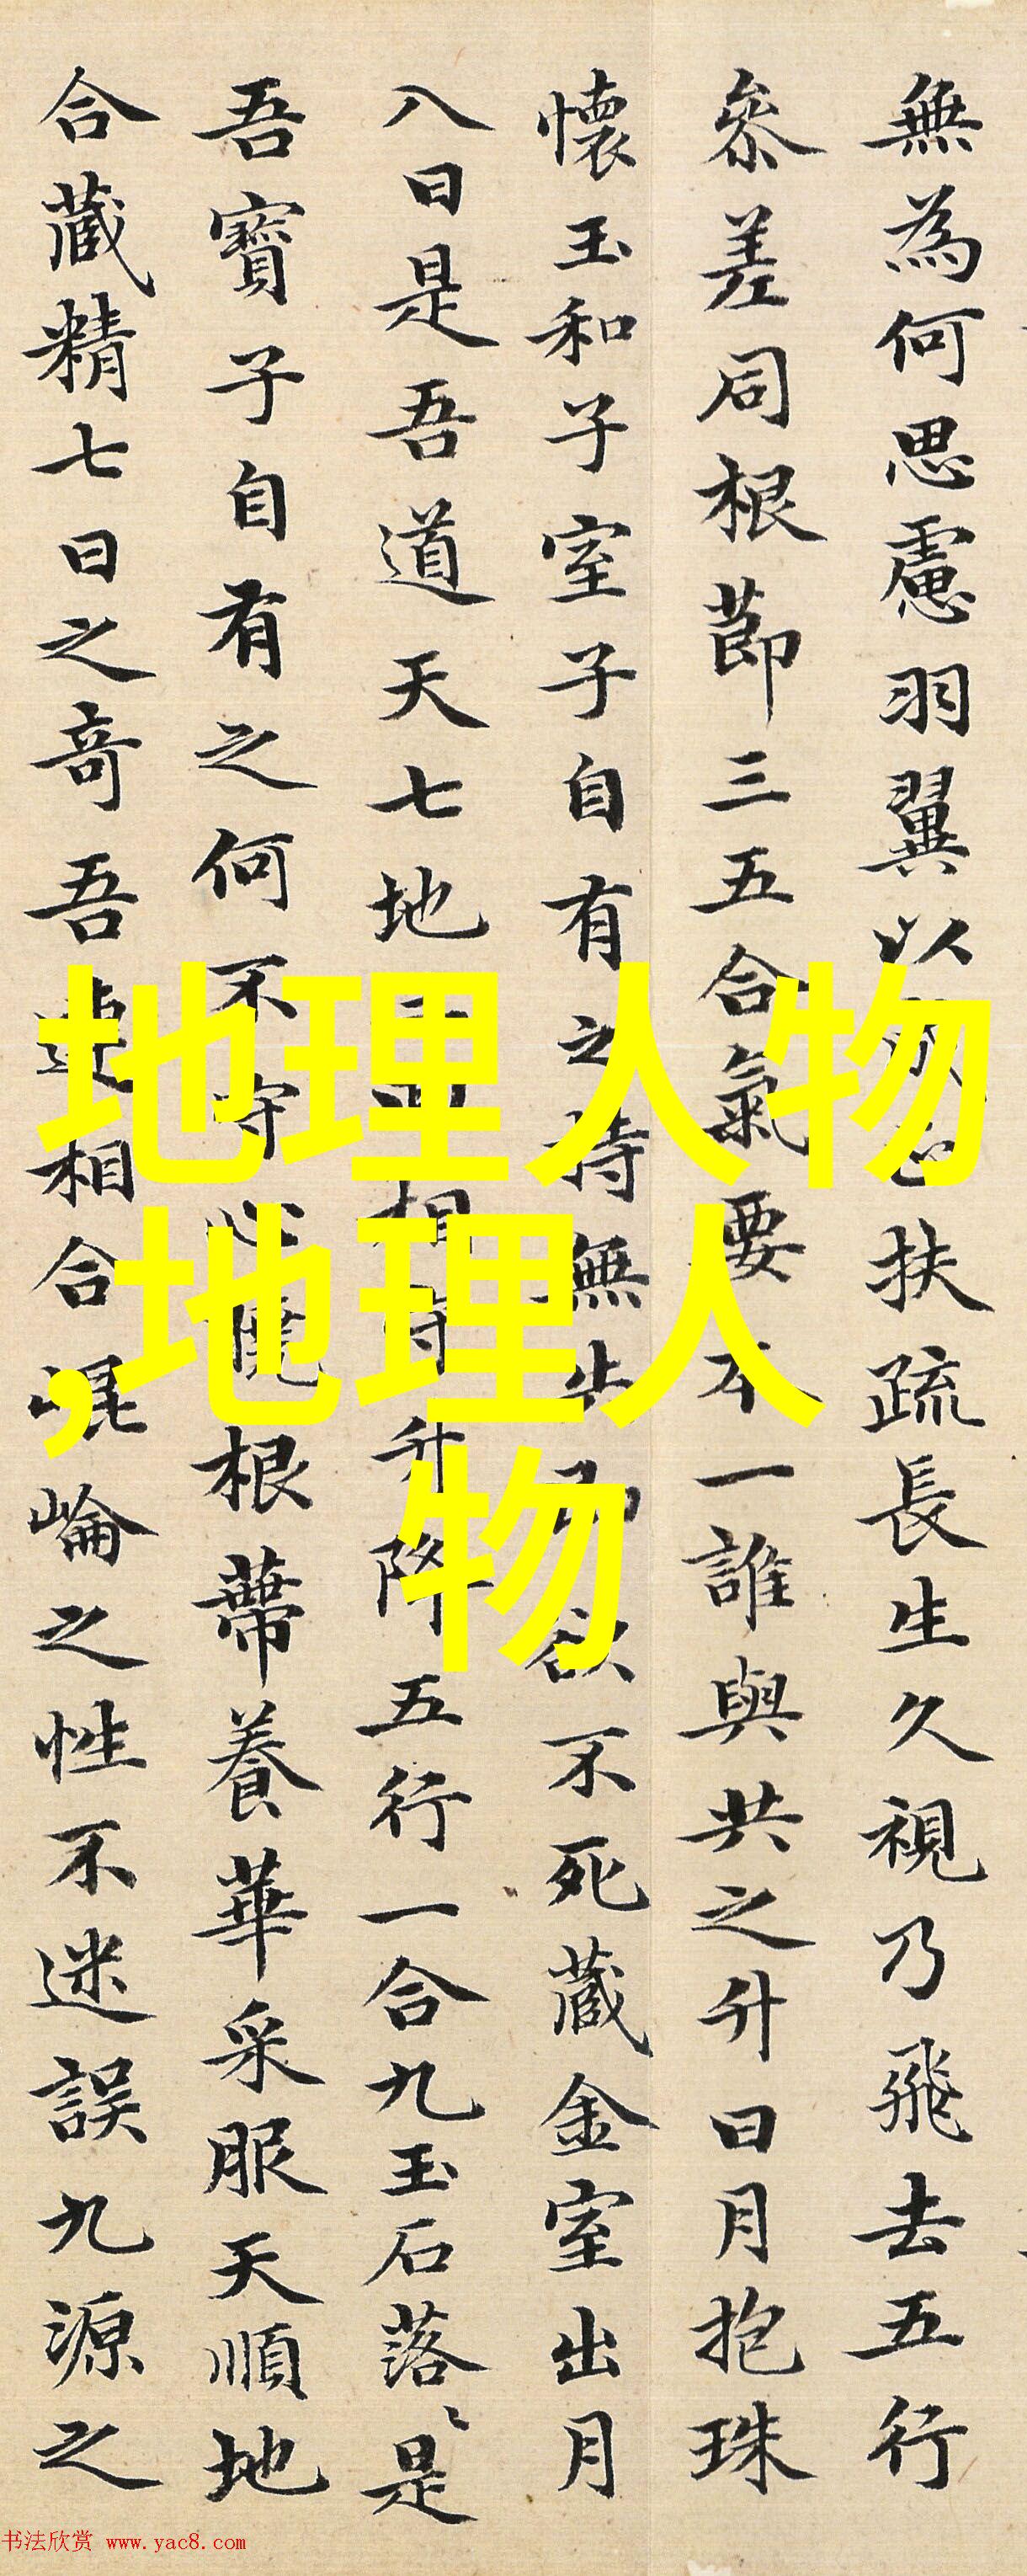 無為何思慮羽翼以扶疏長生久視乃飛去五行
叅差同根莭三五合氣要本一誰與共之升日月抱珠
懷玉和子室子自有之持無失即欲不死藏金室出月
八日是吾道天七地相守升降五行一合九玉石落〻是
吾寶子自有之何不守心曉根蔕養華采服天順地
合藏精七日之奇吾連相合崐崘之性不迷誤九源之
地理人物
,地理人
物
书法欣赏 www.yac8.com